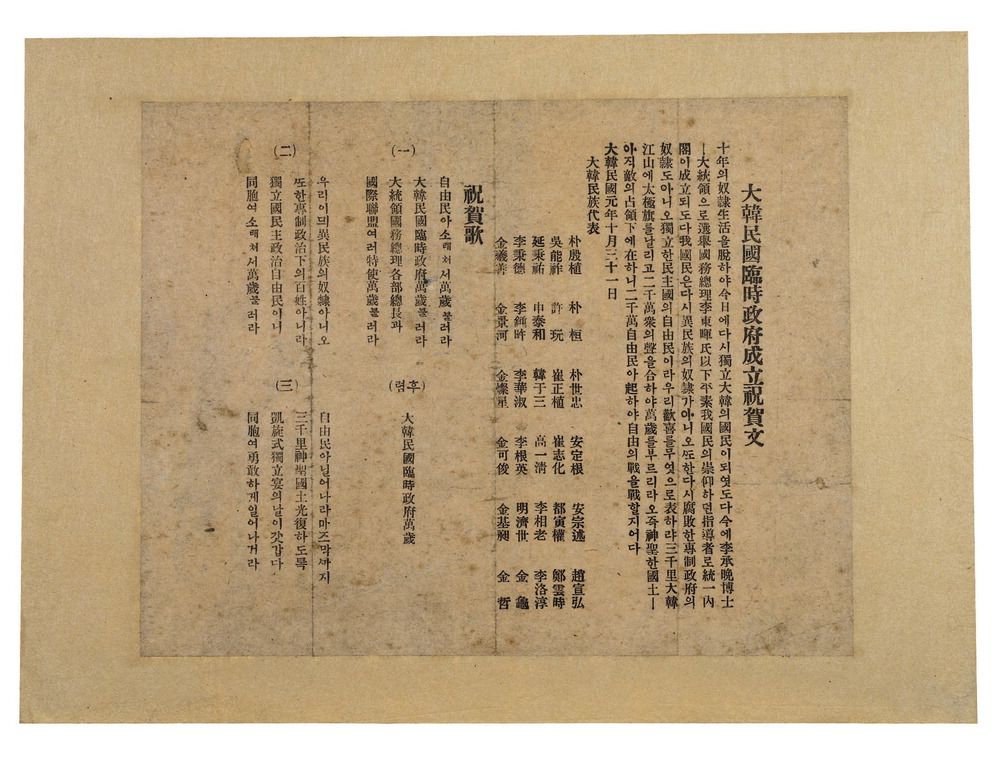 大韓民國臨時政府成立祝賀文
十年의奴隷生活을脫하야今日에다시獨立大韓의國民이되엿도다今에李承晩博士
ㅣ大統領으로選擧國務總理李東暉氏以下平素我國民의崇仰하던指導者로統一內
閣이成立되도다我國民은다시異民族의奴隷가아니오ᄯᅩ한다시腐敗한專制政府의
奴隷도아니오獨立한民主國의自由民이라우리歡喜를무엇으로表하랴三千里大韓
江山에太極旗를날리고二千萬衆의聲을合하야萬歲를부르리라오즉神聖한國土ㅣ
아직敵의占領下에在하니二千萬自由民아起하야自由의戰을戰할지어다
大韓民國元年十月三十一日
大韓民族代表
朴殷植 朴桓 朴世忠 安定根 安宗述 趙宣弘
吳能祚 許玩 崔正植 崔志化 都寅權 鄭雲時
延秉祐 申泰和 韓于三 高一淸 李相老 李洛淳
李秉德 李鍾旿 李華淑 李根英 明濟世 金龜
金羲善 金景河 金燦星 金可俊 金基昶 金哲
祝賀歌
(一)
自由民아소래처서萬歲불러라
大韓民國臨時政府萬歲불러라
大統領國務總理各部總長과
國際聯盟여러特使萬歲불러라
(후렴)
大韓民國臨時政府萬歲
(二)
우리이믜異民族의奴隷아니오
ᄯᅩ한專制政治下의百姓아니라
獨立國民主政治自由民이니
同胞여소래처서萬歲불러라
(三)
自由民아닐어나라마즈막ᄭᅡ지
三千里神聖國土光復하도록
凱旋式獨立宴의날이갓갑다
同胞여勇敢하게일어나거라